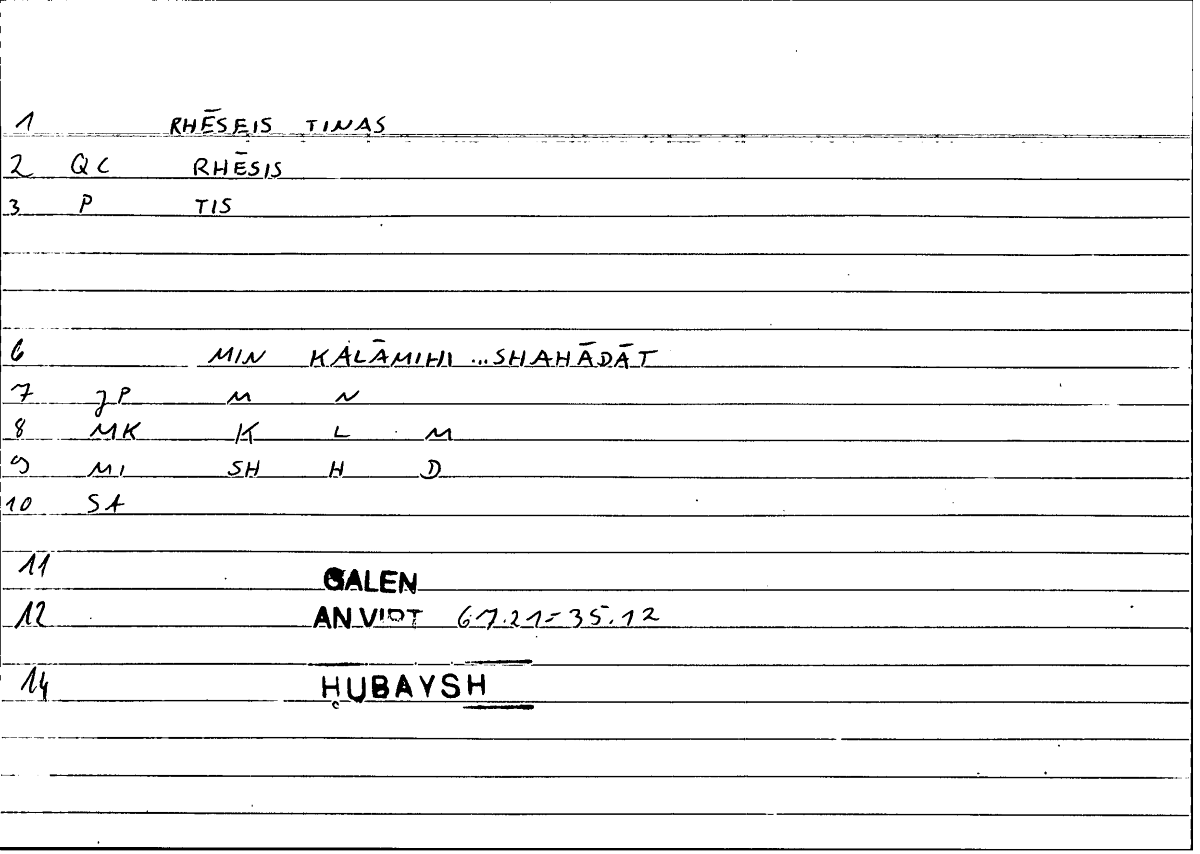 1 RHĒSEIS TINAS
2 QC RHĒSIS
3 P TIS
6 MIN KALĀMIHI ... SHAHĀDĀT
7 JP M N
8 MK K L M
9 MI SH H D
10 SA
11 GALEN
12 AN VIRT 67.21=35.12
14 ḤUBAYSH